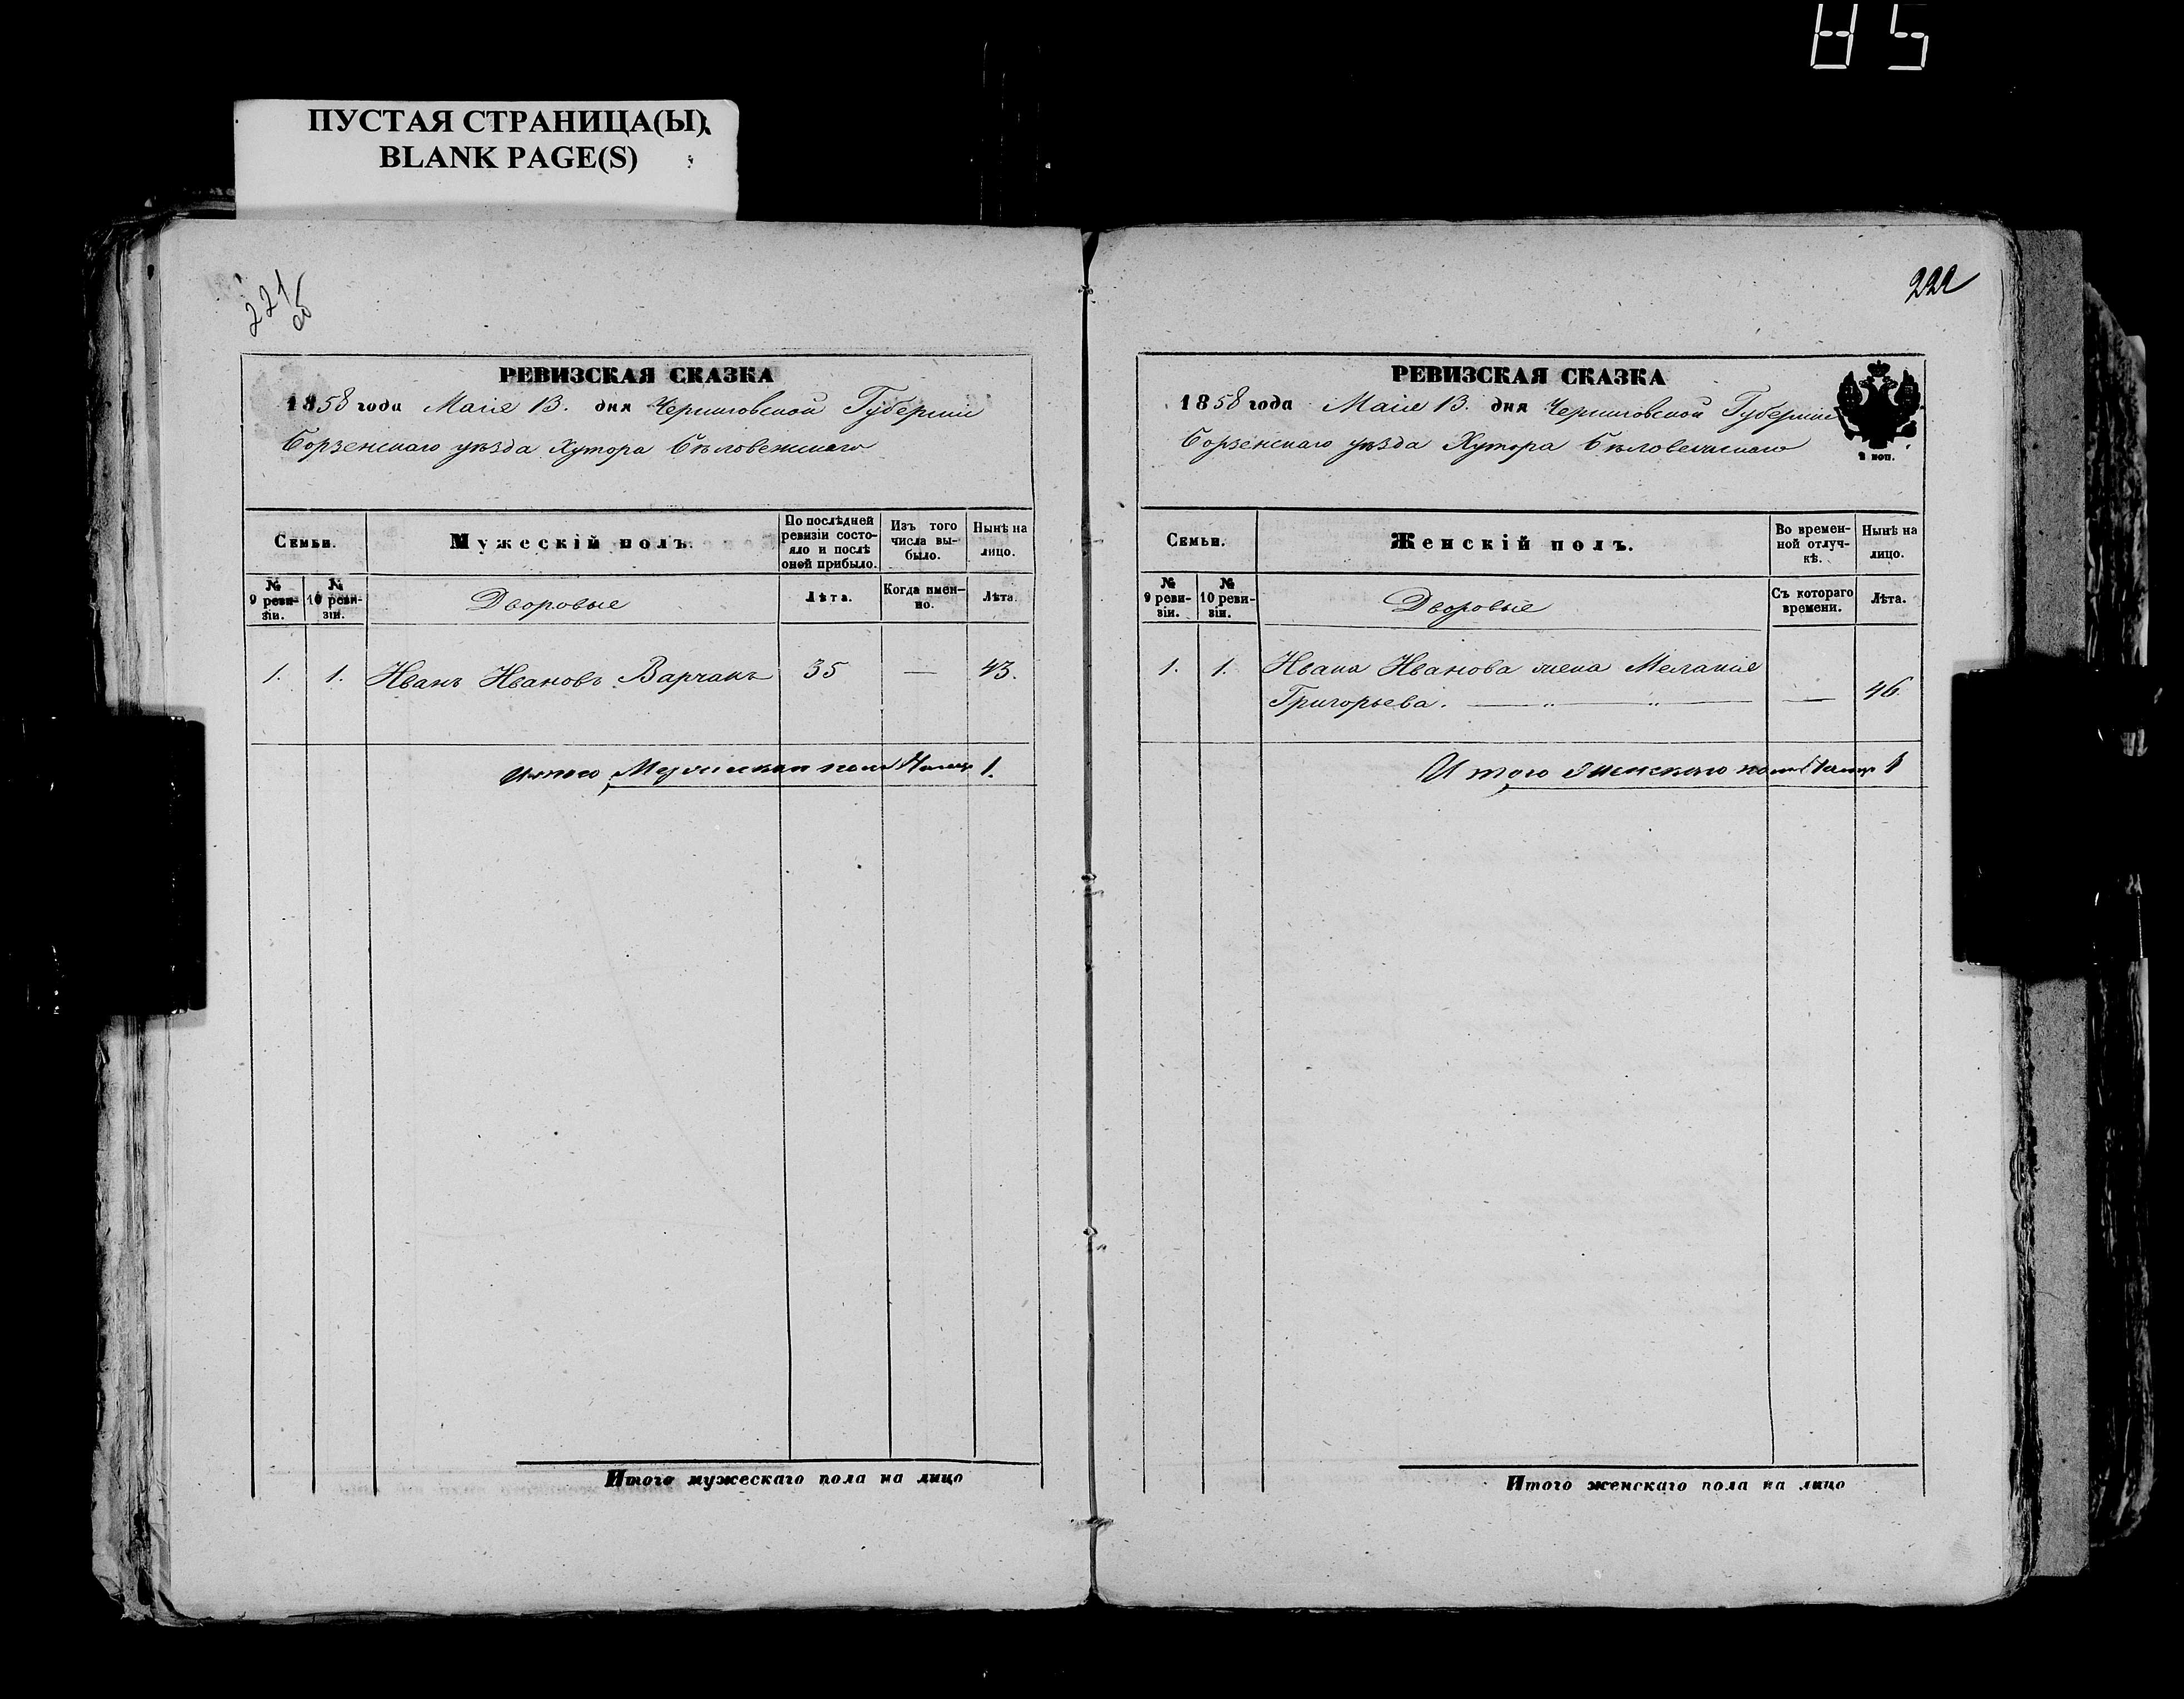 85
ПУСТАЯ СТРАНИЦА(Ы)
BLANK PAGE(S)
221
об
РЕВИЗСКАЯ СКАЗКА
1858 года Маія 13. дня Черниговской Губерніи
Борзенскаго уѣзда Хутора Бѣловежскаго
Семьи.
Мужескій полъ.
По послѣдней ревизіи состояло и послѣ оной прибыло.
Изъ того числа выбыло.
Нынѣ на лицо.
№ 9 ревизіи.
№ 10 ревизіи.
Дворовые
Лѣта.
Когда именно.
Лѣта.
1. 1. Иванъ Ивановъ Варчакъ 35 — 43.
Итого Мужескаго пола На лицо 1.
Итого мужескаго пола на лицо
222
РЕВИЗСКАЯ СКАЗКА
1858 года Маія 13. дня Черниговской Губерніи
Борзенскаго уѣзда Хутора Бѣловежскаго
2 коп.
Семьи.
Женскій полъ.
Во временной отлучкѣ.
Нынѣ на лицо.
№ 9 ревизіи.
№ 10 ревизіи.
Дворовые
Съ котораго времени.
Лѣта.
1. 1. Ивана Иванова жена Меланія
Григорьева. — „ — „ — — 46.
Итого Женскаго пола На лицо 1
Итого женскаго пола на лицо